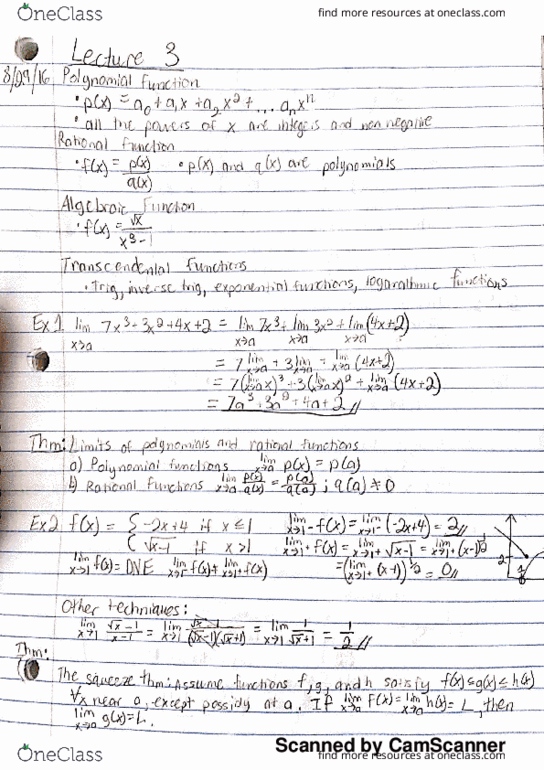 OneClass
find more resources at oneclass.com
Lecture 3
8/29/16 Polynomial Function
• p(x) = a₀ + a₁x + a₂x² + ... aₙxⁿ
• all the powers of x are integers and non negative
Rational Function
• f(x) = p(x)/q(x) • p(x) and q(x) are polynomials
Algebraic Function
• f(x) = √x/(x³-1)
Transcendental Functions
• Trig, inverse trig, exponential functions, logarithmic functions
Ex.1 lim x→a 7x³+3x²+4x+2 = lim x→a 7x³ + lim x→a 3x² + lim x→a (4x+2)
= 7 lim x→a + 3 lim x→a + lim x→a (4x+2)
= 7(lim x→a x)³ + 3(lim x→a x)² + lim x→a (4x+2)
= 7a³ + 3a² + 4a + 2 //
Thm: Limits of polynomials and rational functions
a) Polynomial functions lim x→a p(x) = p(a)
b) Rational functions lim x→a p(x)/q(x) = p(a)/q(a) ; q(a) ≠ 0
Ex2 f(x) = { -2x+4 if x ≤ 1 lim x→1⁻ f(x) = lim x→1⁻ (-2x+4) = 2 //
{ √x-1 if x > 1 lim x→1⁺ f(x) = lim x→1⁺ √x-1 = lim x→1⁺ (x-1)^½
lim x→1 f(x) = DNE lim x→1⁻ f(x) ≠ lim x→1⁺ f(x) = (lim x→1⁺ (x-1))^½ = 0 //
2
Other techniques:
lim x→1 (√x-1)/(x-1) = lim x→1 (√x-1)/((√x-1)(√x+1)) = lim x→1 1/(√x+1) = 1/2 //
Thm:
The squeeze thm: Assume functions f, g, and h satisfy f(x) ≤ g(x) ≤ h(x)
∀x near a, except possibly at a. If lim x→a f(x) = lim x→a h(x) = L, then
lim x→a g(x) = L.
Scanned by CamScanner
OneClass
find more resources at oneclass.com